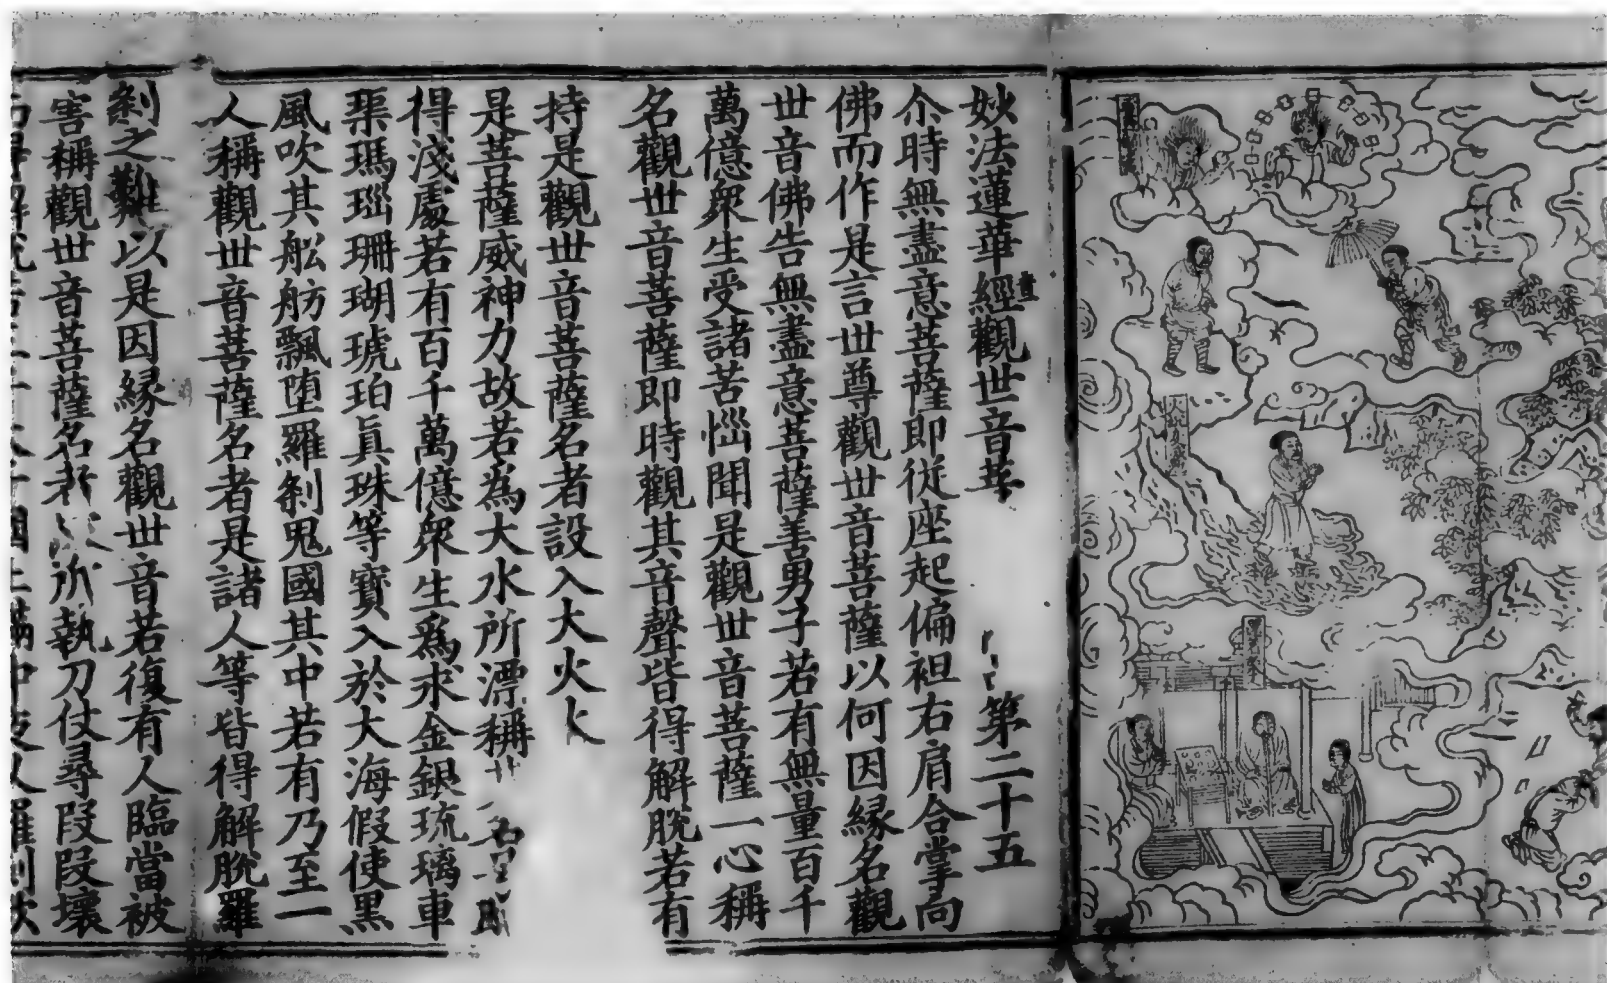 妙法蓮華經觀世音菩 第二十五
尒時無盡意菩薩即從座起偏袒右肩合掌向
佛而作是言世尊觀世音菩薩以何因緣名觀
世音佛告無盡意菩薩善男子若有無量百千
萬億衆生受諸苦惱聞是觀世音菩薩一心稱
名觀世音菩薩即時觀其音聲皆得解脫若有
持是觀世音菩薩名者設入大火火
是菩薩威神力故若為大水所漂稱 名
得淺處若有百千萬億衆生為求金銀琉璃車
渠瑪瑙珊瑚琥珀真珠等寶入於大海假使黑
風吹其舩舫飄墮羅剎鬼國其中若有乃至一
人稱觀世音菩薩名者是諸人等皆得解脫羅
剎之難以是因緣名觀世音若復有人臨當被
害稱觀世音菩薩名者 所執刀仗尋段段壞